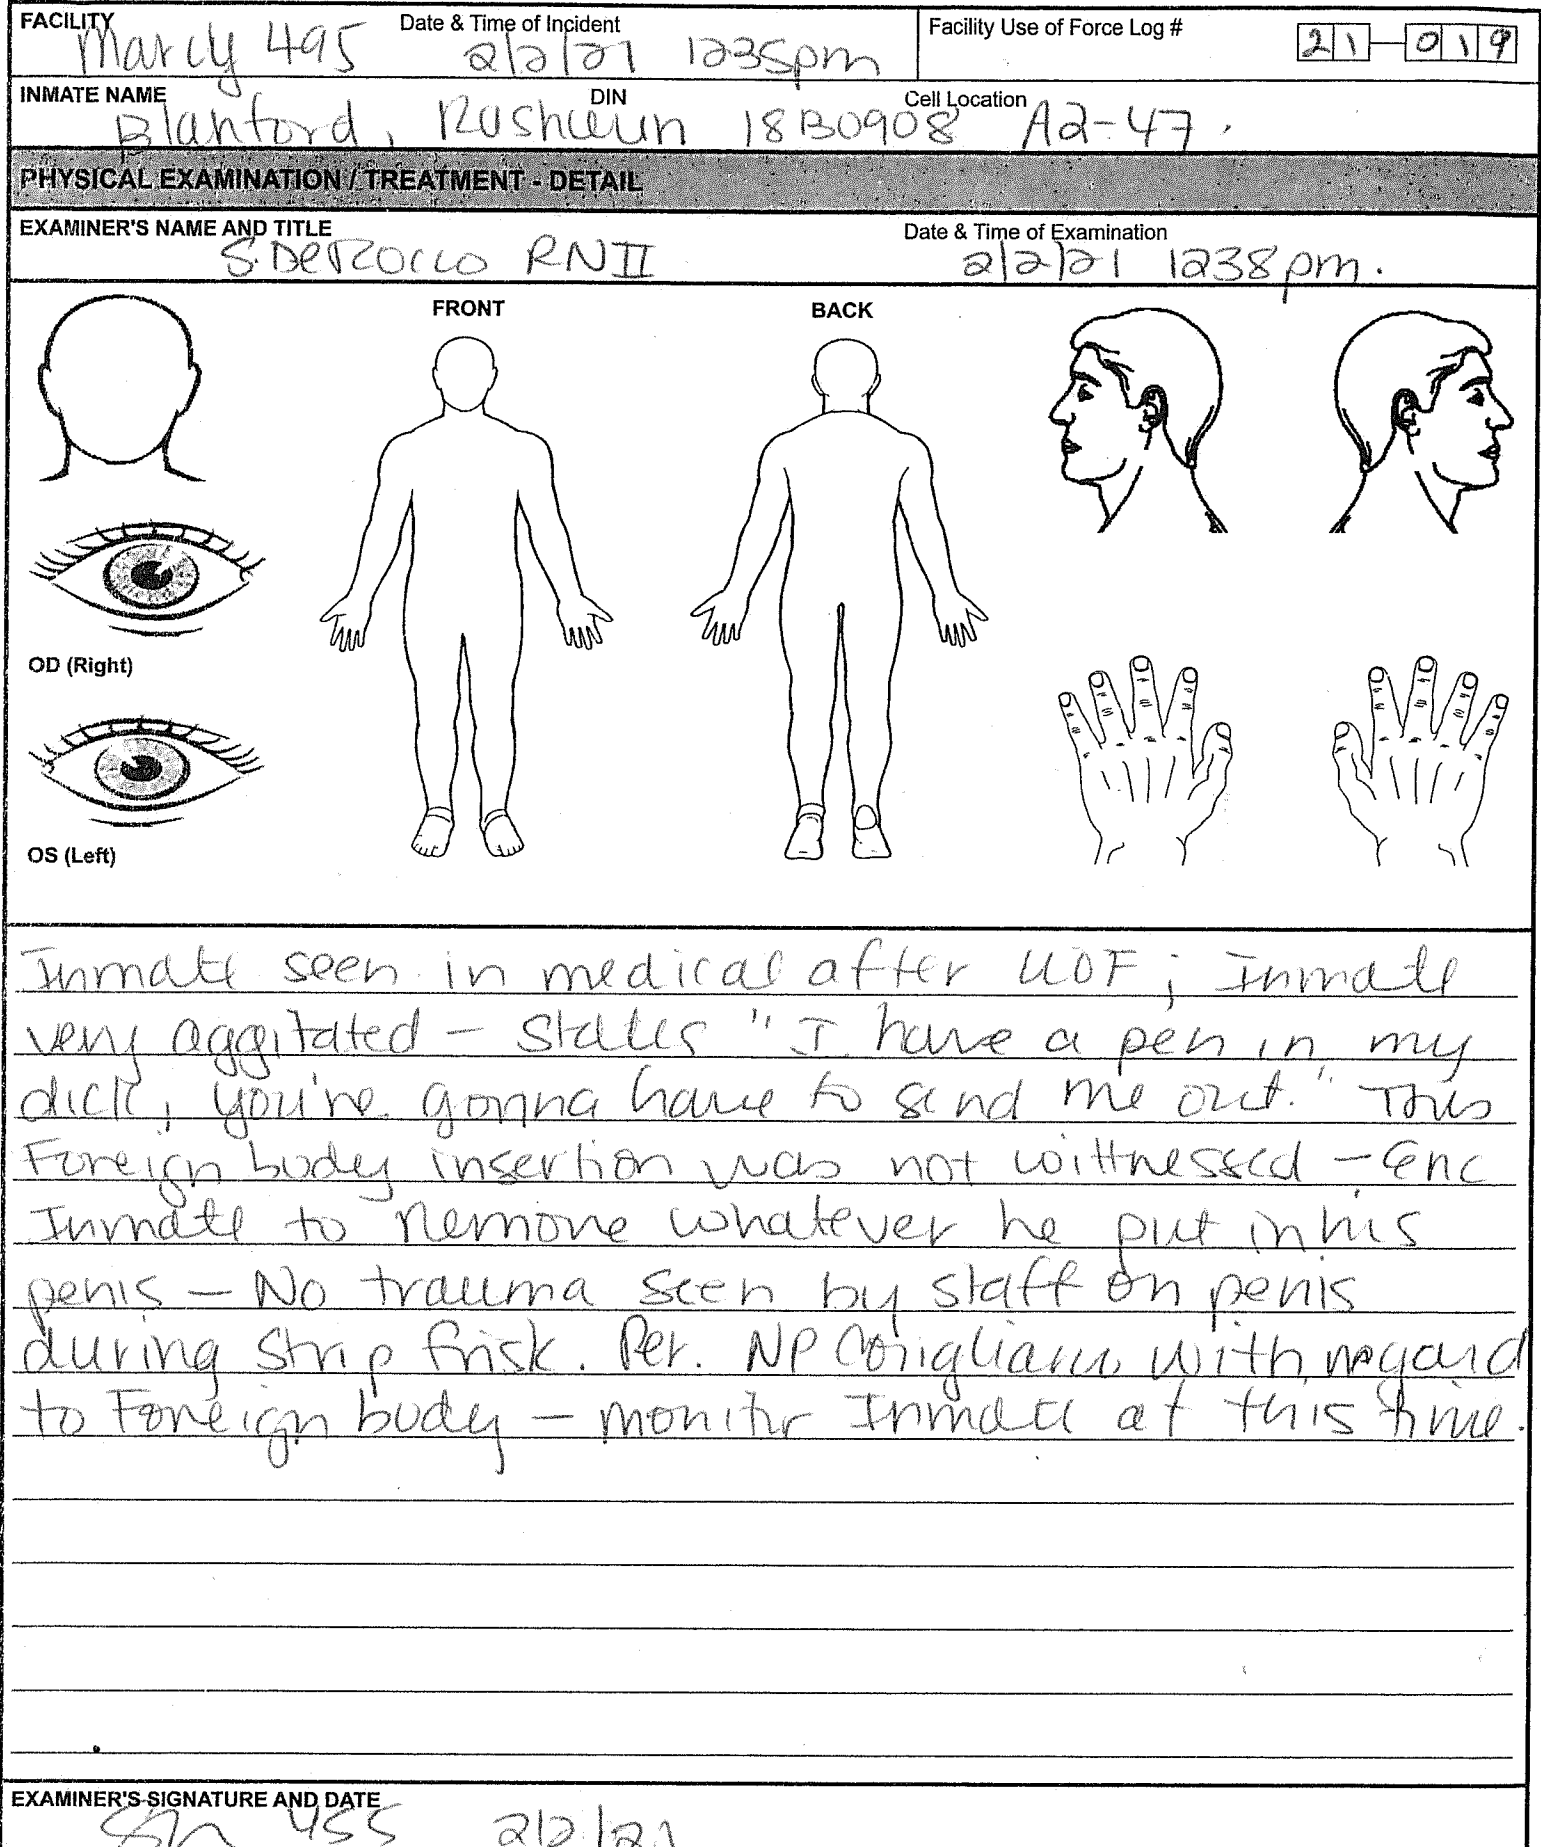 FACILITY Date & Time of Incident Facility Use of Force Log #
Marcy 495 2/2/21 1235pm 21-019
INMATE NAME DIN Cell Location
Blanford, Rashawn 18B0908 A2-47.
PHYSICAL EXAMINATION / TREATMENT - DETAIL
EXAMINER'S NAME AND TITLE Date & Time of Examination
S. DeRocco RN II 2/2/21 1238pm.
FRONT BACK
OD (Right)
OS (Left)
Inmate seen in medical after UOF; Inmate
very aggitated - States "I have a pen in my
dick, you're gonna have to send me out." This
Foreign body insertion was not wittnessed - Enc
Inmate to remove whatever he put in his
penis - No trauma seen by staff on penis
during strip frisk. Per. NP Corigliano with regard
to Foreign body - monitor Inmate at this time.
EXAMINER'S SIGNATURE AND DATE
455 2/2/21